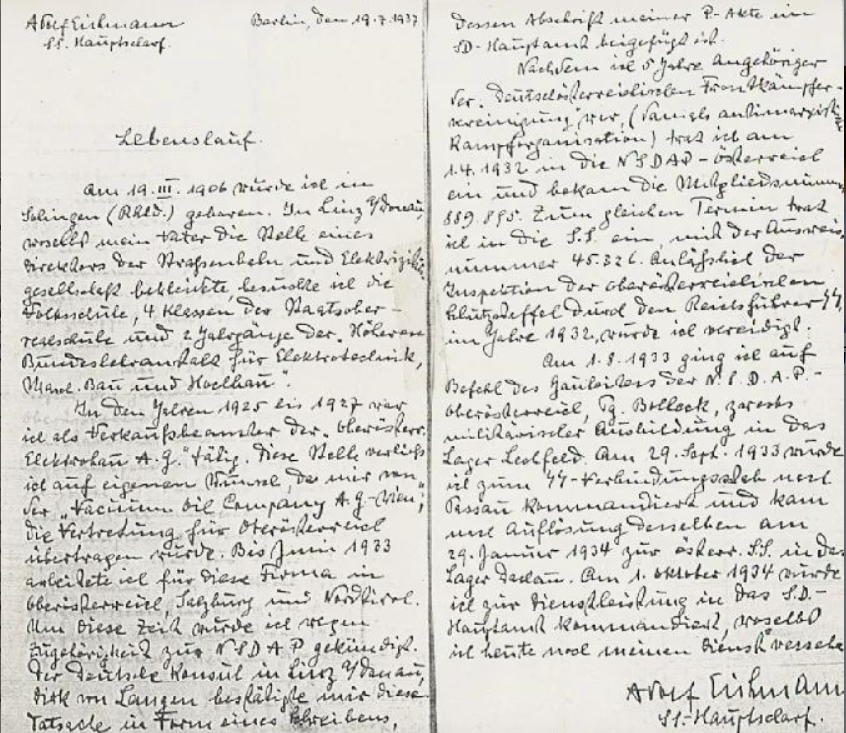 Adolf Eichmann
SS. Hauptscharf.
Berlin, den 19.7.1937
Lebenslauf.
Am 19.III.1906 wurde ich in
Solingen (Rhld.) geboren. In Linz a/Donau,
woselbst mein Vater die Stelle eines
Direktors der Strassenbahn und Elektrizitäts-
gesellschaft bekleidete, besuchte ich die
Volksschule, 4 Klassen der Staatsober-
realschule und 2 Jahrgänge der "Höheren
Bundeslehranstalt für Elektrotechnik,
Masch. Bau und Hochbau".
In den Jahren 1925 bis 1927 war
ich als Verkaufsbeamter der "Oberösterr.
Elektrobau A.G." tätig. Diese Stelle verliess
ich auf eigenen Wunsch, da mir von
der "Vacuum Oil Company A.G.-Wien",
die Vertretung für Oberösterreich
übertragen wurde. Bis Juni 1933
arbeitete ich für diese Firma in
Oberösterreich, Salzburg und Nordtirol.
Um diese Zeit wurde ich wegen
Zugehörigkeit zur NSDAP gekündigt.
Der Deutsche Konsul in Linz a/Donau,
Dirk von Langen bestätigte mir diese
Tatsache in Form eines Schreibens,
dessen Abschrift meiner P-Akte im
SD-Hauptamt beigefügt ist.
Nachdem ich 5 Jahre Angehöriger
der "Deutschösterreichischen Frontkämpfer-
vereinigung" war, (damals antimarxistische
Kampforganisation) trat ich am
1.4.1932 in die NSDAP-Österreich
ein und bekam die Mitgliedsnummer
889.895. Zum gleichen Termin trat
ich in die S.S. ein, mit der Ausweis-
nummer 45.326. Anlässlich der
Inspektion der oberösterreichischen
Schutzstaffel durch den Reichsführer SS,
im Jahre 1932, wurde ich vereidigt.
Am 1.8.1933 ging ich auf
Befehl des Gauleiters der N.S.D.A.P.-
Oberösterreich, Pg. Bolleck, zwecks
militärischer Ausbildung in das
Lager Lechfeld. Am 29. Sept. 1933 wurde
ich zum SS-Verbindungsstab nach
Passau kommandiert und kam
nach Auflösung desselben am
29. Januar 1934 zur österr. S.S. in das
Lager Dachau. Am 1. Oktober 1934 wurde
ich zur Dienstleistung in das S.D.-
Hauptamt kommandiert, woselbst
ich heute noch meinen Dienst versehe
Adolf Eichmann
SS-Hauptscharf.